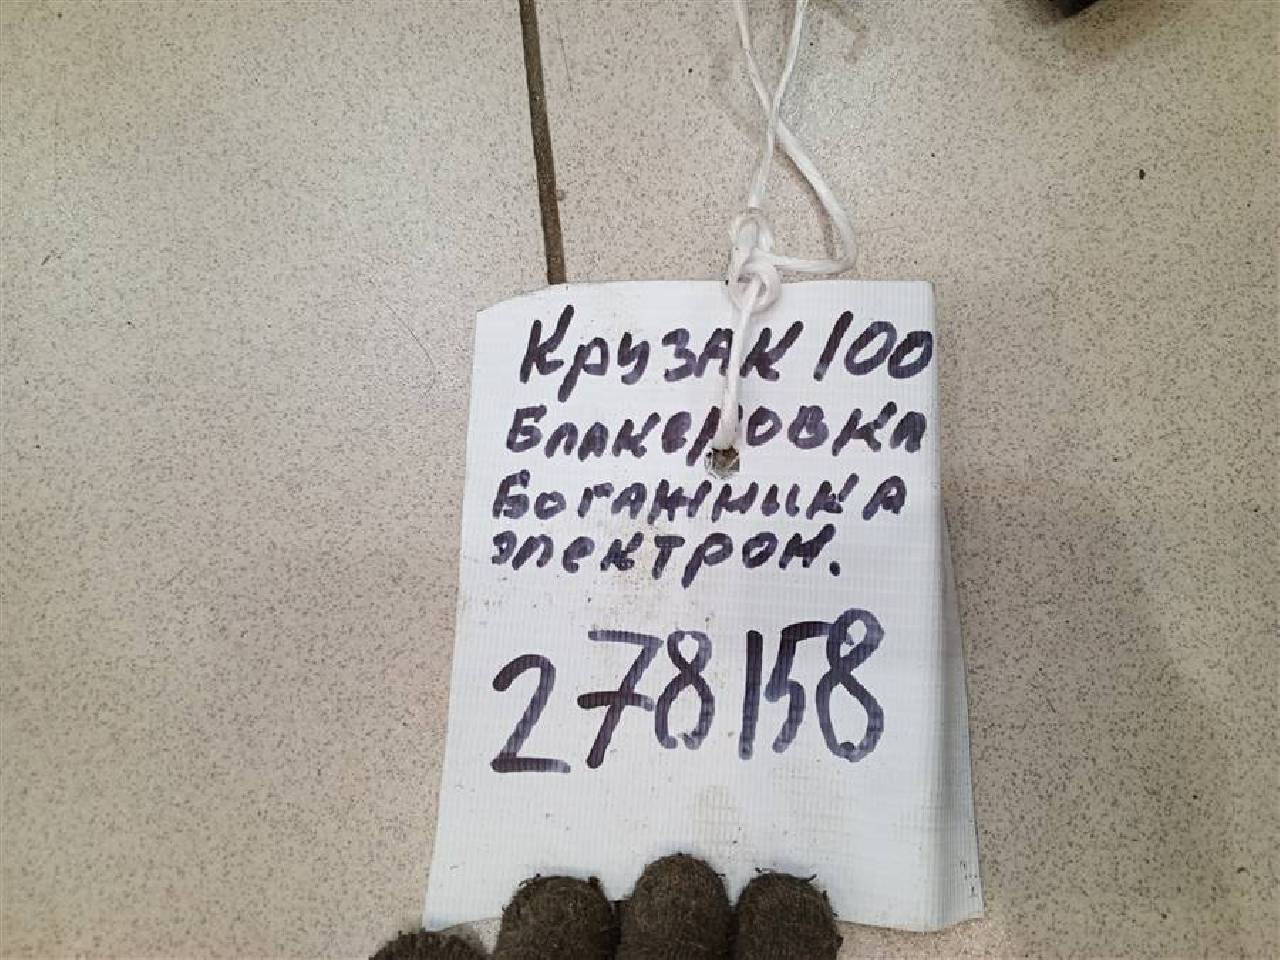 Крузак 100
Блакеровка
Богажника
электрон.
278158